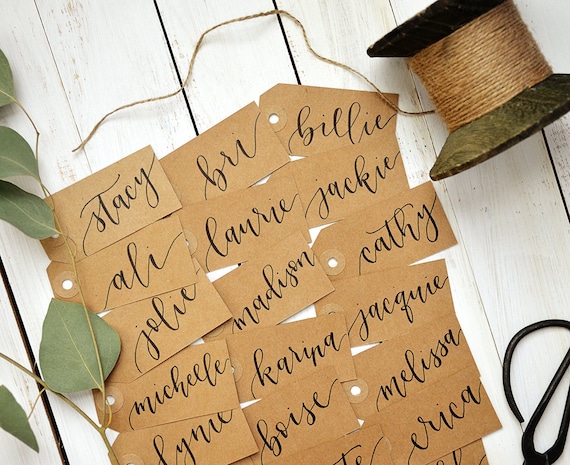 stacy
bri
billie
ali
laurie
jackie
jolie
madison
cathy
michelle
karina
jacquie
lynie
boise
melissa
erica